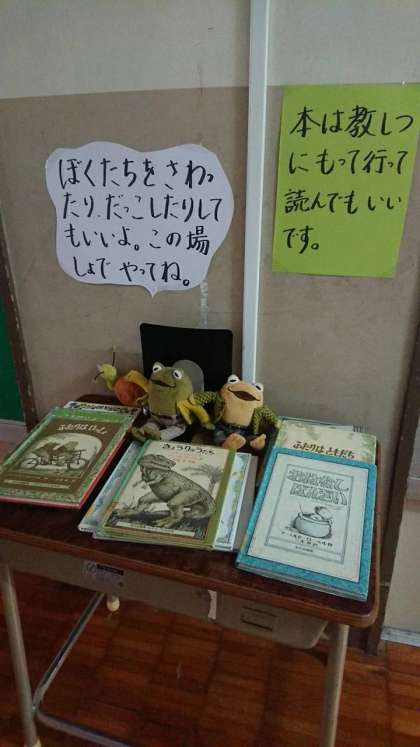 ぼくたちをさわっ
たり、だっこしたりして
もいいよ。この場
しょで やってね。
本は教しつ
にもって行って
読んでもいい
です。
ふたりはいっしょ
きょうりゅうたち
ふたりはともだち